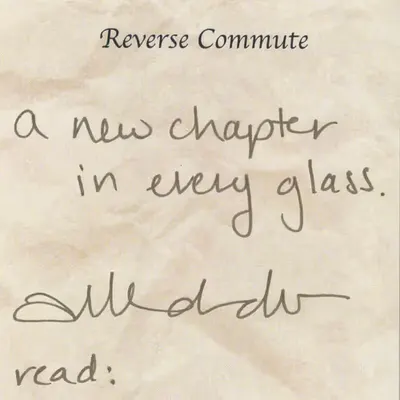 Reverse Commute
a new chapter
in every glass.
read: